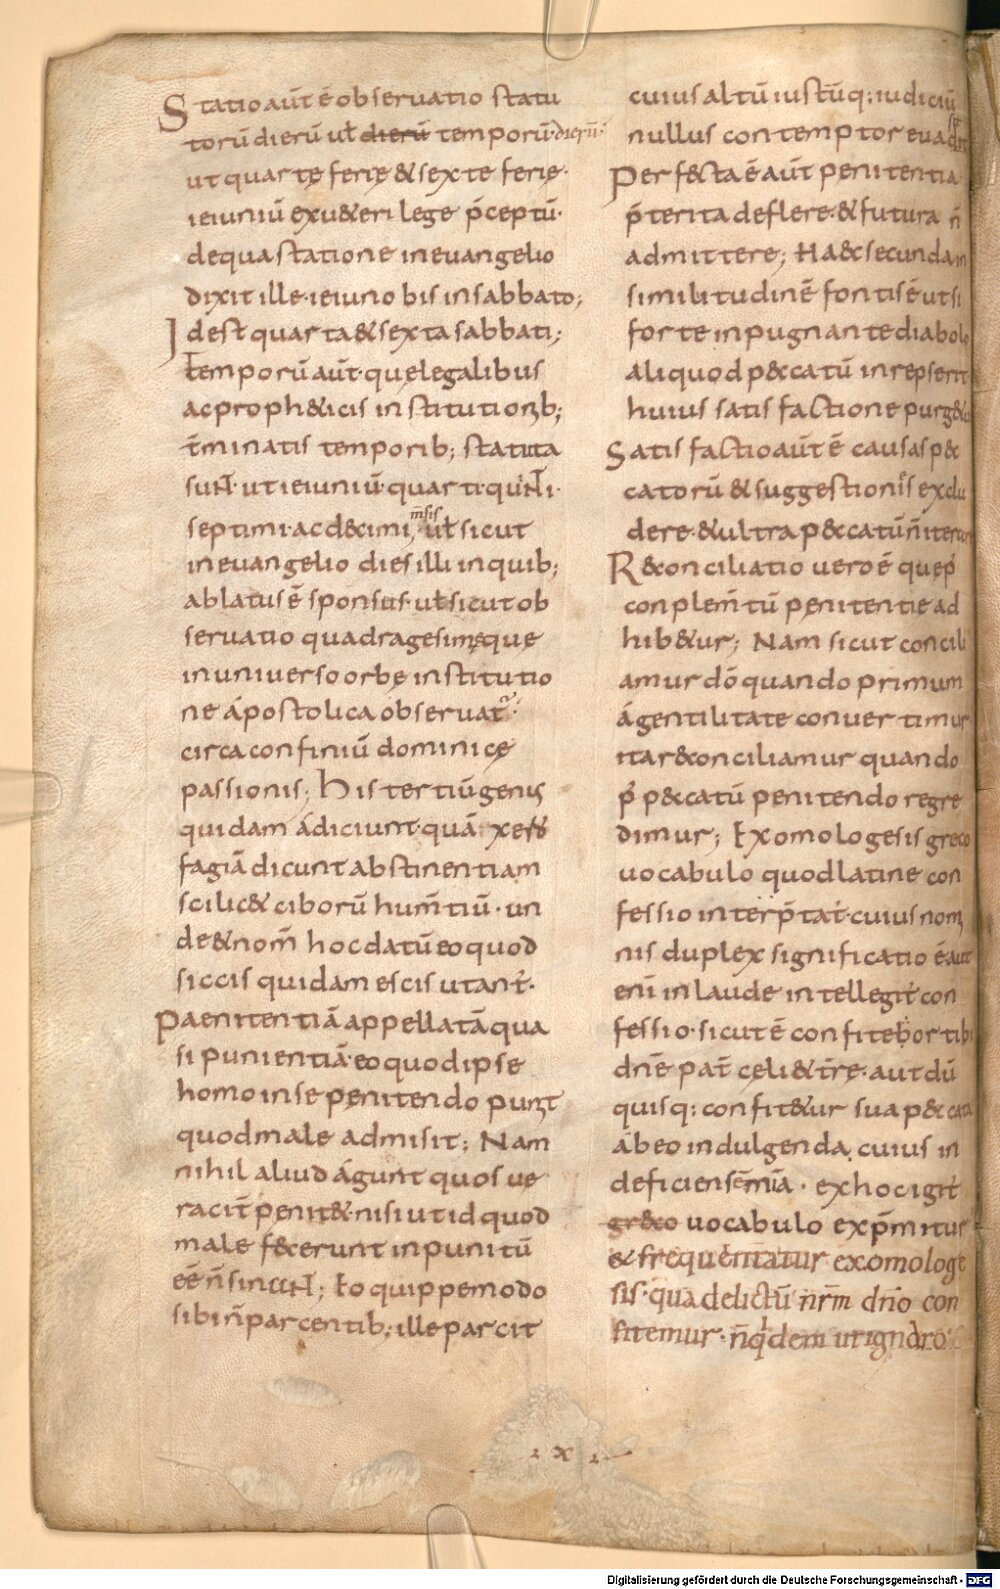 Statio aūt ē observatio statu
torū dierū uł dierū temporū· dierū·
ut quarte ferię & sexte ferię·
ieiuniū ex u&eri lege p̄ceptū·
de qua statione in evangelio
dixit ille· ieiuno bis in sabbato;
Id est quarta & sexta sabbati;
Temporū aūt· que legalibus
ac proph&icis institutionib;
t̄minatis temporib; statuta
sunt· ut ieiuniū· quarti· quinti·
septimi· ac decimi, m̄sis uł sicut
in evangelio dies illi in quib;
ablatus ē sponsus· uł sicut ob
servatio quadragesimę que
in universo orbe institutio
ne apostolica observat᷒·
circa confiniū dominicę
passionis; His tertiū genus
quidam adiciunt· quā xero
fagiā dicunt abstinentiam
scilic& ciborū hum̄tiū· un
de & nom̄ hoc datū eo quod
siccis quidam escis utant᷒·
Paenitentiā appellatā qua
si punientiā· eo quod ipse
homo in se penitendo punit
quod male admisit; Nam
nihil aliud agunt quos ve
racit̄ penit&· nisi ut id quod
male fecerunt inpunitū
eē n̄ sinant; Eo quippe modo
sibi n̄ parcentib; ille parcit
cuius altū iustūq; iudiciū
nullus contemptor evadit
Perfecta ē aūt penitentia
p̄terita deflere· & futura n̄
admittere; Haec secundam
similitudinē fontis ē ut si
forte inpugnante diabolo
aliquod peccatū inrepserit
huius satisfactione purg&
Satisfactio aūt ē causas pec
catorū & suggestionis exclu
dere· & ultra peccatū n̄ iterar
Reconciliatio uero ē que p᷒
conplem̄tū penitentie ad
hib&ur; Nam sicut concili
amur dō quando primum
a gentilitate convertimur
ita reconciliamur quando
p᷒ peccatū penitendo regre
dimur; Exomologesis greco
vocabulo quod latine con
fessio interp̄tat᷒· cuius nomi
nis duplex significatio ē· aut
enī in laude intellegit᷒ con
fessio· sicut ē confitebor tibi
dn̄e pat̄ cęli & t̄rę· aut dū
quisq; confit&ur sua peccata
ab eo indulgenda, cuius in
deficiens ē mīa· ex hoc igit᷒
greco vocabulo exp̄mitur
& frequentatur exomologe
sis· qua delictū nr̄m dn̄o con
fitemur· n̄ qdem ut ignaro
· x ·
Digitalisierung gefördert durch die Deutsche Forschungsgemeinschaft - DFG